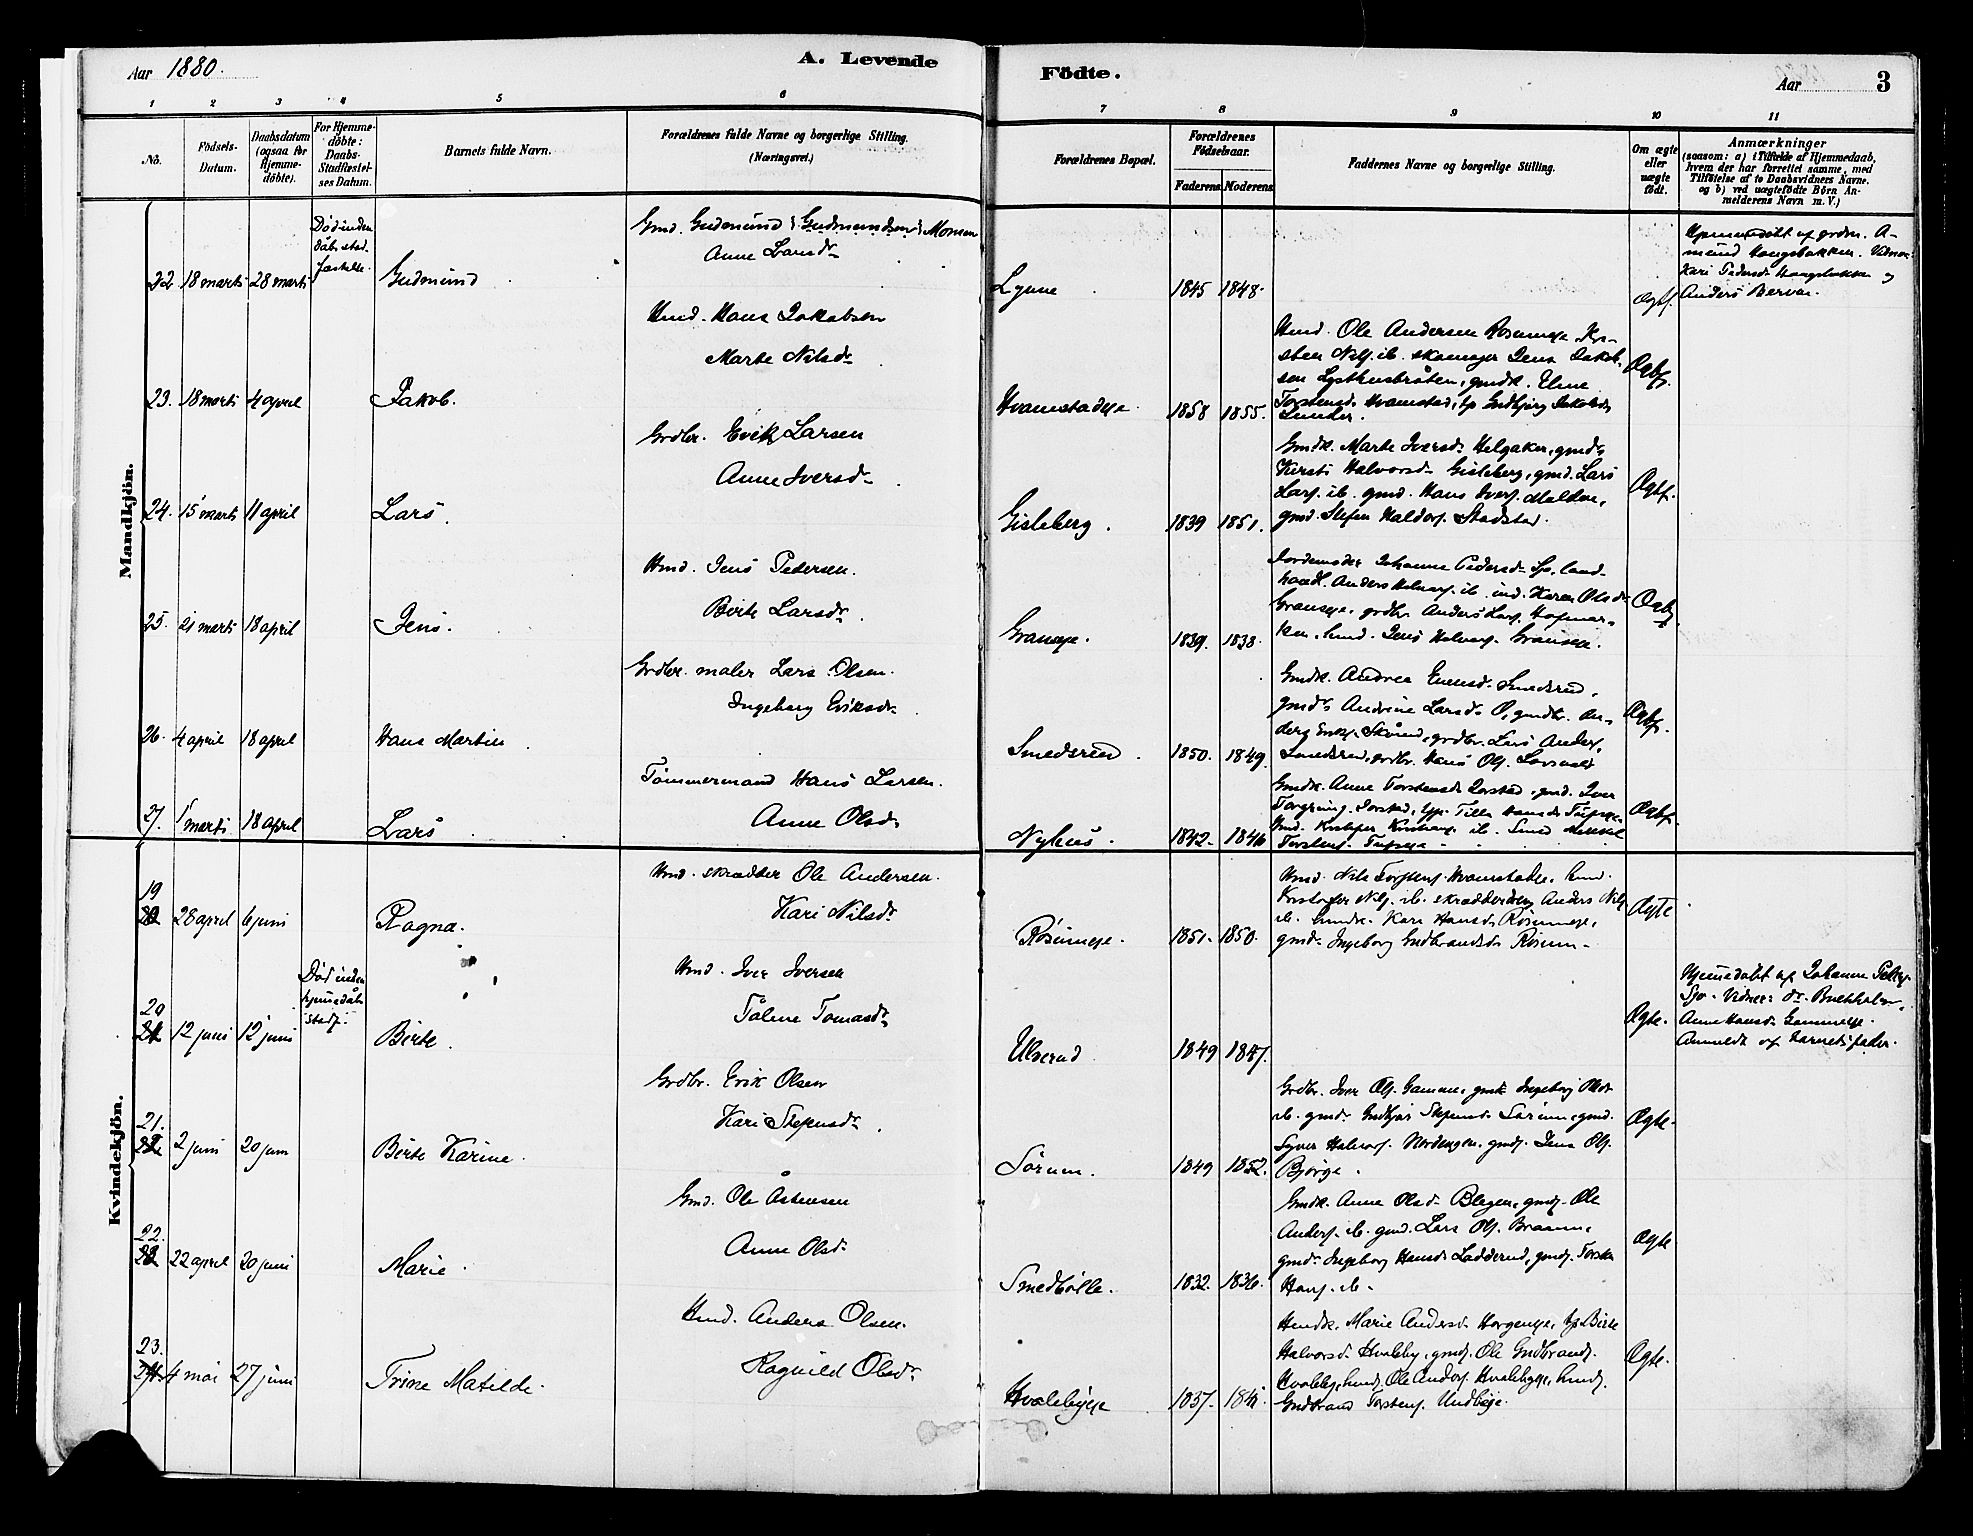 Aar 1880.
A. Levende
Födte.
Aar
3
1 2 3 4 5 6 7 8 9 10 11
No.
Födsels-
Datum.
Daabsdatum
(ogsaa for
Hjemme-
döbte).
For Hjemme-
döbte:
Daabs-
Stadfæstel-
ses Datum.
Barnets fulde Navn.
Forældrenes fulde Navne og borgerlige Stilling.
(Næringsvei.)
Forældrenes Bopæl.
Forældrenes
Födselsaar.
Faderens. Moderens.
Faddernes Navne og borgerlige Stilling.
Om ægte
eller
uægte
födt.
Anmærkninger
(saasom: a) i Tilfælde af Hjemmedaab,
hvem der har forrettet samme, med
Tilföielse af to Daabsvidners Navne,
og b) ved uægtefödte Börn An-
melderens Navn m. V.)
Mandkjön.
22 18 marts 28 marts
Död inden
dåbs stad
fæstelse.
Gudmund
Gmd. Gudmund (Gudmundsen) Monsen
Anne Larsdr
Lynne
1845 1848.
Ægtf.
Hjemmedöbt af grdm. A-
mund Haugsbakken. Vidner
Kari Pedersd. Haugsbakken og
Anders
23. 18 marts 4 april
Jakob.
Hmd. Hans Jakobsen
Marte Nilsdr
Hvamstadeje
1858 1855.
Hmd. Ole Andersen Rosumeje
sten Nilss. ib. skomager Jens Jakob-
sen Lysthusbråten, gmdk. Eline
Torstensd. Hvamstad, tp Gudbjørg Jakobsd
Lunder.
Ægtf.
24. 15 marts 11 april
Lars.
Grdbr. Erik Larsen
Anne Iversdr
Gisleberg.
1839 1851.
Gmdk. Marte Iversd. Helgaker, gmdk
Kersti Halvorsd. Gisleberg, gmd. Lars
Larss. ib. gmd. Hans Ivers.
gmd. Stefen Haldors. Stadstad.
Ægtf.
25. 21 marts 18 april
Jens.
Hmd. Jens Pedersen.
Berte Larsdr
Graneje.
1839. 1838.
Jordemoder Johanne Pedersd. Sjo, land-
handl. Anders Halvors. ib. ind. Karen Olsdr
Graneje, grdbr. Anders Larss. Hofmar-
ken, hmd. Jens Halvors.
Ægtf
26. 4 april 18 april
Hans Martin
Grdbr. maler Lars Olsen.
Ingeborg Eriksdr
Smedsrud.
1850. 1849.
Gmdk. Andrea Evensd. Smedsrud,
gmdk Andrine Larsd. O, gmdbr. An-
ders Eriks. grdbr. Lars Anders.
Smedsrud, grdbr. Hans Ols.
Ægtf.
27. 1 marts 18 april
Lars
Tömmermand Hans Larsen.
Anne Olsd.
Nyhus.
1842. 1846
Gmdk. Anne Torstensd. Jorstad, gmd. Iver
Jorstad,
Torstens.
Ægtf.
Kvindekjön.
19
20 28 april 6 juni
Ragna.
Hmd. skrædder Ole Andersen.
Kari Nilsdr
Rosumeje.
1851. 1850.
Hmd. Nils Torstens. Hvamstadeje, hmd.
Kristofer Nils. ib. skrædderdreng Anders Nils.
ib. hmdk. Kari Hansd. Rosumeje,
gmdk Ingeborg Gudbrandsd. Rosum.
Ægte
20
21 12 juni 12 juni
Död inden
hjemmedåb
stadf.
Berte.
Hmd. Iver Iversen
Tomasdr
Ulverud.
1849 1847.
Ægte.
Hjemmedöbt af Johanne Peders.
Sjo. Vidner: dr. Buchholm,
Anne Hansd. Gammeleje.
Anmeldt af barnets fader.
21.
22 2 juni 20 juni
Berte Karine.
Grdbr. Erik Olsen
Kari Stefensdr
Sörum.
1849 1852.
Grdbr. Iver Ols. Gamme, gmdk Ingeborg Olsdr
ib. gmdk Gudbjør Stefensd. Sörum, gmd.
Syver Halvors. Nordengen, gmds. Jens Ols.
Bjørge.
Ægte.
22.
23 22 april 20 juni
Marie.
Gmd. Ole Åstensen
Anne Olsd.
Smedbölle.
1832. 1836.
Gmdk. Anne Olsd. Blegen, gmds. Ole
Anders. ib. gmd. Lars Ols. Braam,
gmdk Ingeborg Hansd. Ladderud, gmds. Torsten
Hans. ib.
Ægte
23.
24. 4 mai 27 juni
Trine Matilde.
Hmd. Anders Olsen.
Ragnild Olsdr
Hvalebyeje
1837. 1841.
Hmdk. Marie Andersd. Horgeneje, tp Berte
Halvorsd. Hvaleby, gmds. Ole Gudbrands.
Hvaleby, hmd. Ole Anders. Hvalebyeje, hmd.
Gudbrand Torstens. Undleje.
Ægte.